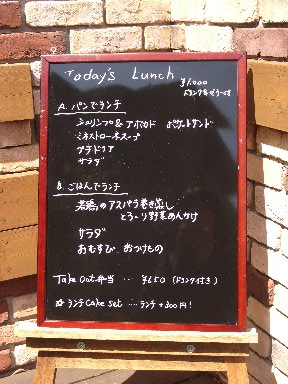 Today's Lunch
¥1,000
A. パンでランチ
シュリンプ&アボカド ポケットサンド
ミネストローネスープ
プチドリア
サラダ
B. ごはんでランチ
若鶏のアスパラ巻き蒸し
とろ〜り野菜あんかけ
サラダ
おむすび おつけもの
Take Out 弁当 … ¥650 (ドリンク付き)
☆ランチ Cake Set … ランチ+300円!